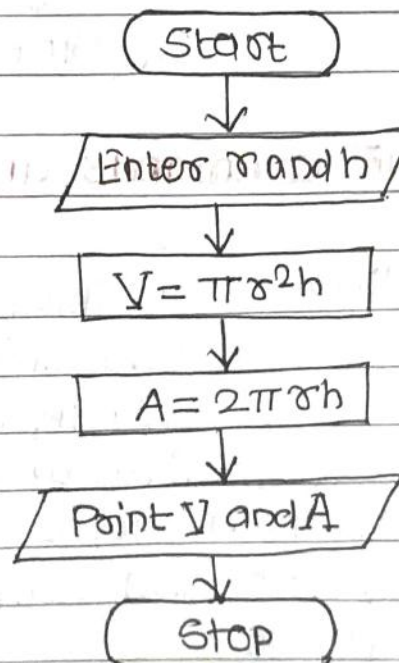 Start
Enter r and h
V = πr²h
A = 2πrh
Print V and A
Stop